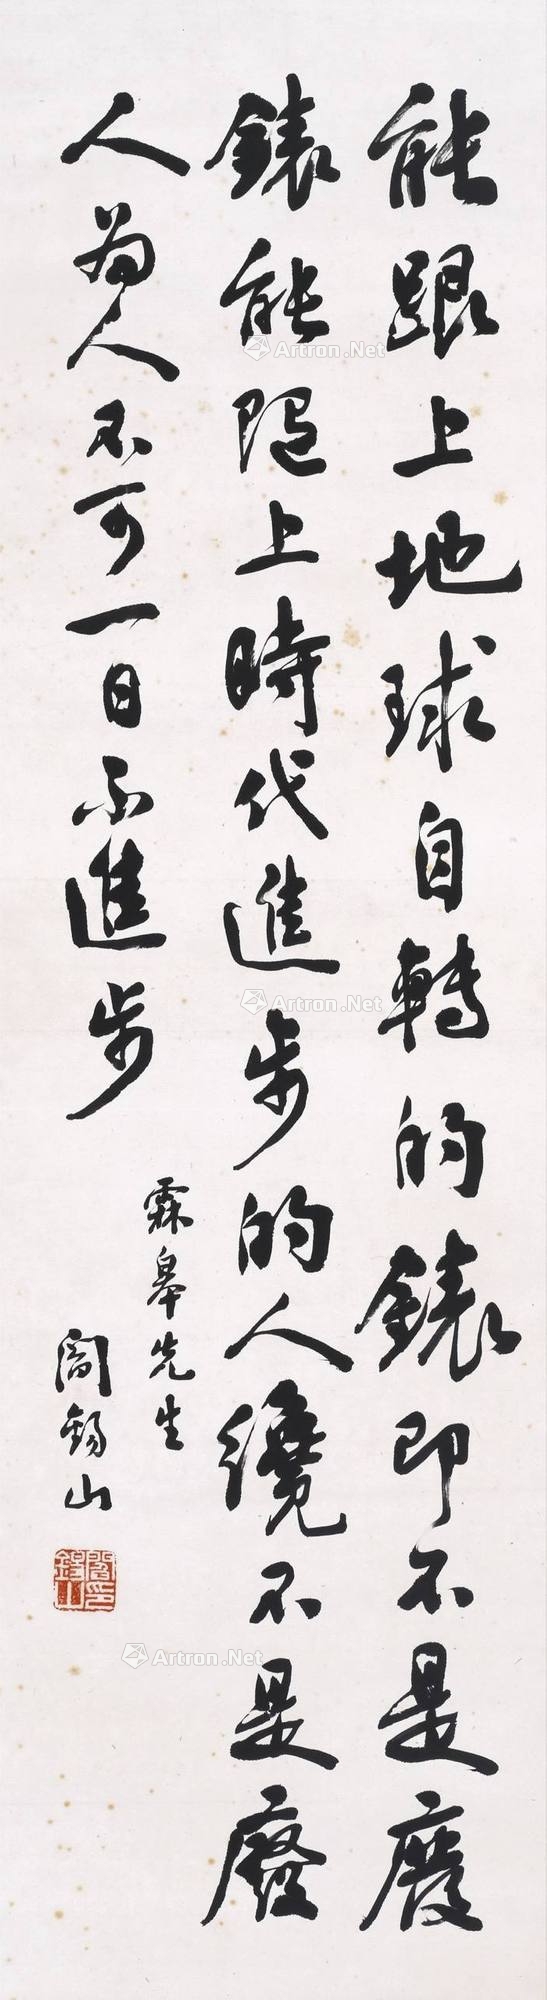 能跟上地球自轉的錶即不是廢
錶能隨上時代進步的人纔不是廢
人為人不可一日不進步
霖皋先生
閻錫山
閻錫山印
Artron.Net
Artron.Net
Artron.Net